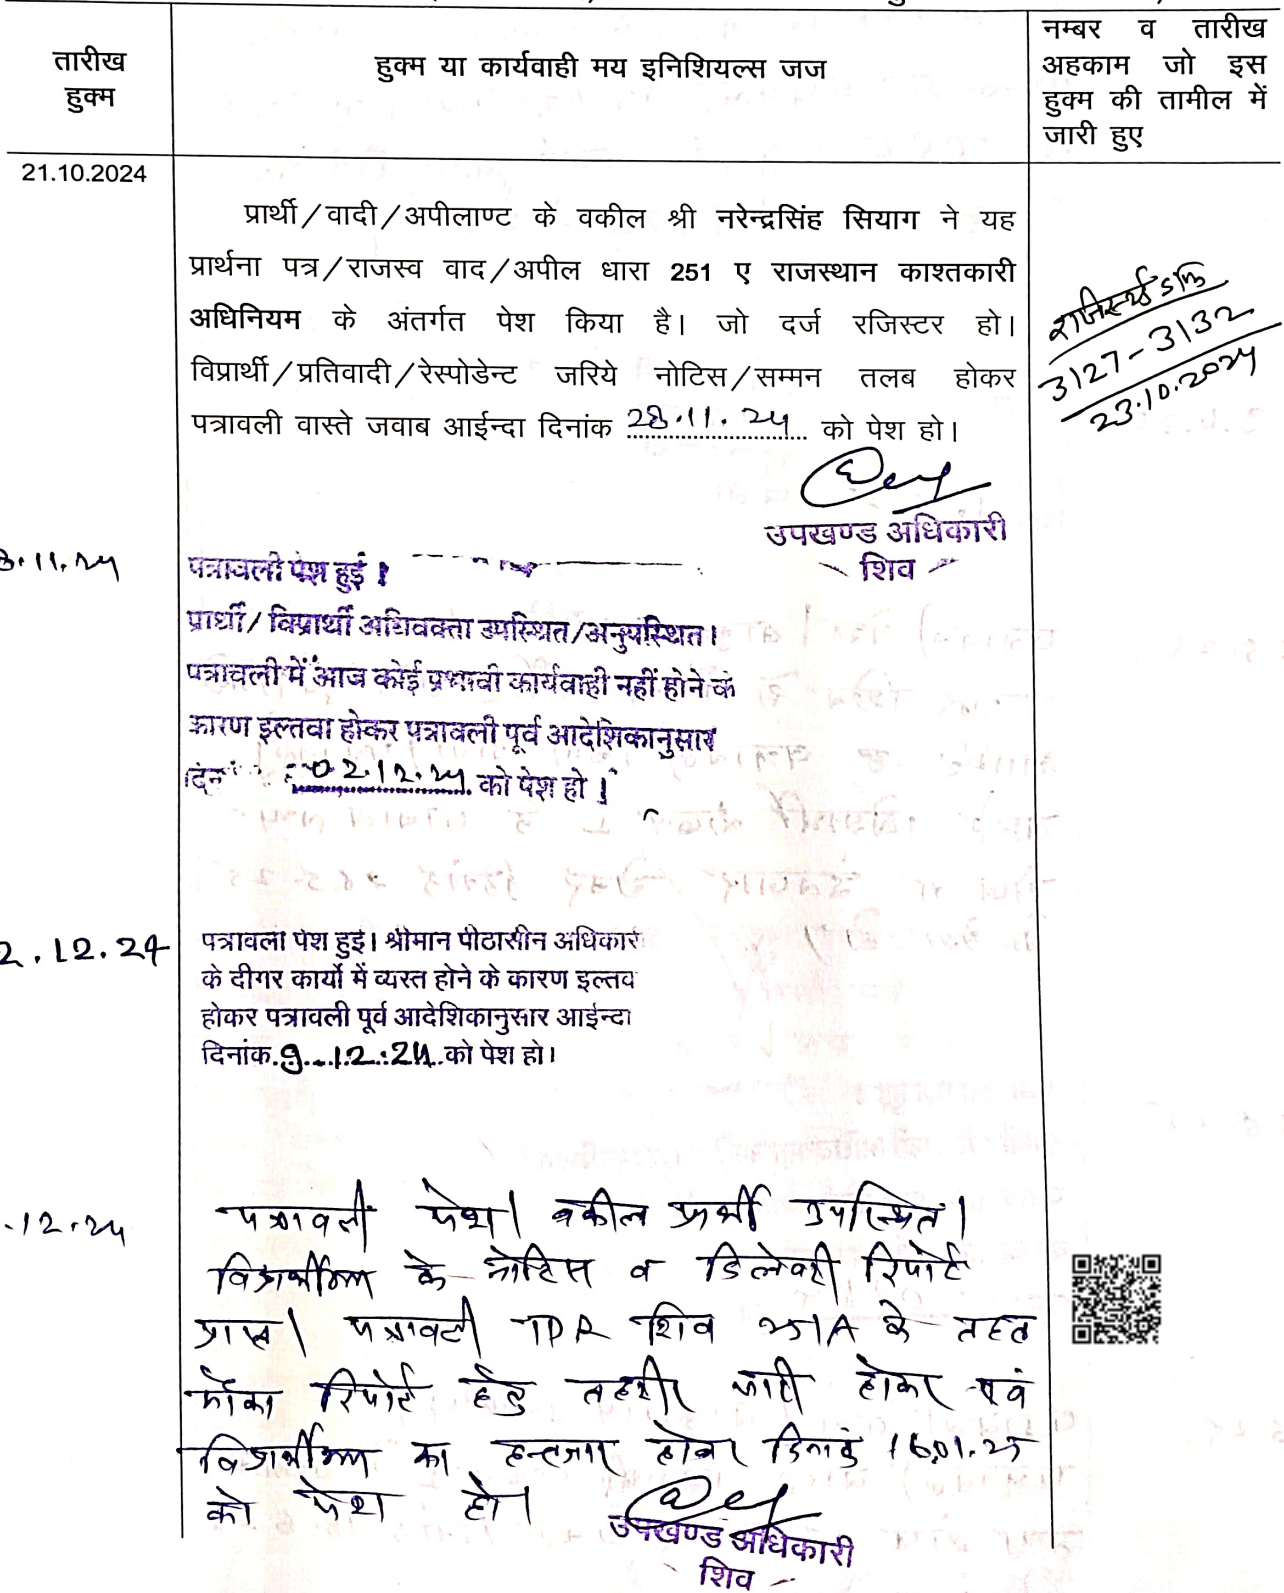 तारीख
हुक्म
हुक्म या कार्यवाही मय इनिशियल्स जज
नम्बर व तारीख
अहकाम जो इस
हुक्म की तामील में
जारी हुए
21.10.2024
प्रार्थी/वादी/अपीलाण्ट के वकील श्री नरेन्द्रसिंह सियाग ने यह
प्रार्थना पत्र/राजस्व वाद/अपील धारा 251 ए राजस्थान काश्तकारी
अधिनियम के अंतर्गत पेश किया है। जो दर्ज रजिस्टर हो।
विप्रार्थी/प्रतिवादी/रेस्पोडेन्ट जरिये नोटिस/सम्मन तलब होकर
पत्रावली वास्ते जवाब आईन्दा दिनांक 28.11.24 को पेश हो।
3127-3132
23.10.2024
उपखण्ड अधिकारी
शिव
.11.24
पत्रावली पेश हुई।
प्रार्थी/विप्रार्थी अधिवक्ता उपस्थित/अनुपस्थित।
पत्रावली में आज कोई प्रभावी कार्यवाही नहीं होने के
कारण इल्तवा होकर पत्रावली पूर्व आदेशिकानुसार
02.12.24 को पेश हो।
2.12.24
पत्रावली पेश हुई। श्रीमान पीठासीन अधिकारी
के दीगर कार्यो में व्यस्त होने के कारण इल्तव
होकर पत्रावली पूर्व आदेशिकानुसार आईन्दा
दिनांक 9.12.24 को पेश हो।
.12.24
पत्रावली पेश। वकील प्रार्थी उपस्थित।
विप्रार्थीगण के नोटिस व डिलेवरी रिपोर्ट
प्राप्त। पत्रावली TDR शिव 251A के तहत
मौका रिपोर्ट हेतु तहरीर जारी होकर एवं
विप्रार्थीगण का इन्तजार होकर दिनांक 16.01.25
को पेश हो।
उपखण्ड अधिकारी
शिव